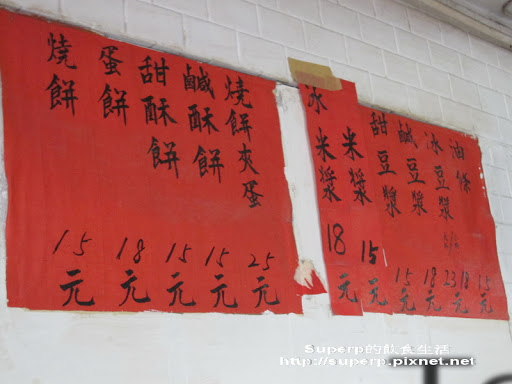 油條 15元
冰豆漿 23 18元
鹹豆漿 18元
甜豆漿 15元
米漿 15元
冰米漿 18元
燒餅夾蛋 25元
鹹酥餅 15元
甜酥餅 15元
蛋餅 18元
燒餅 15元
Superp的飲食生活
http://superp.pixnet.net